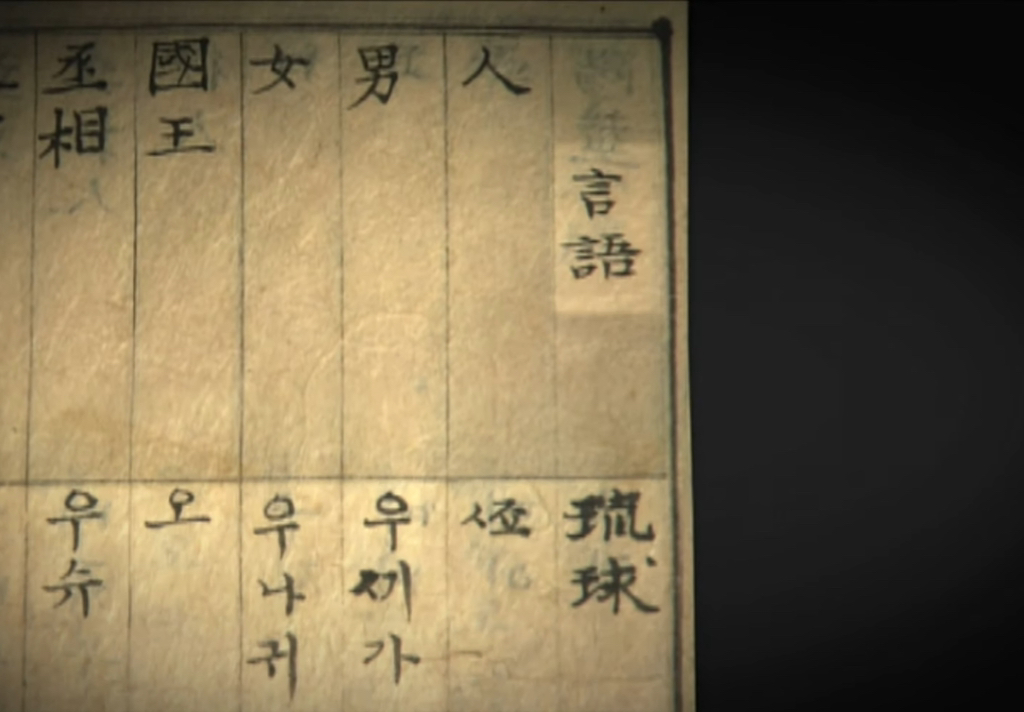 言語
琉球
人
ᄶᅭ
男
우ᄭᅵ가
女
우나귀
國王
오
丞相
우슈